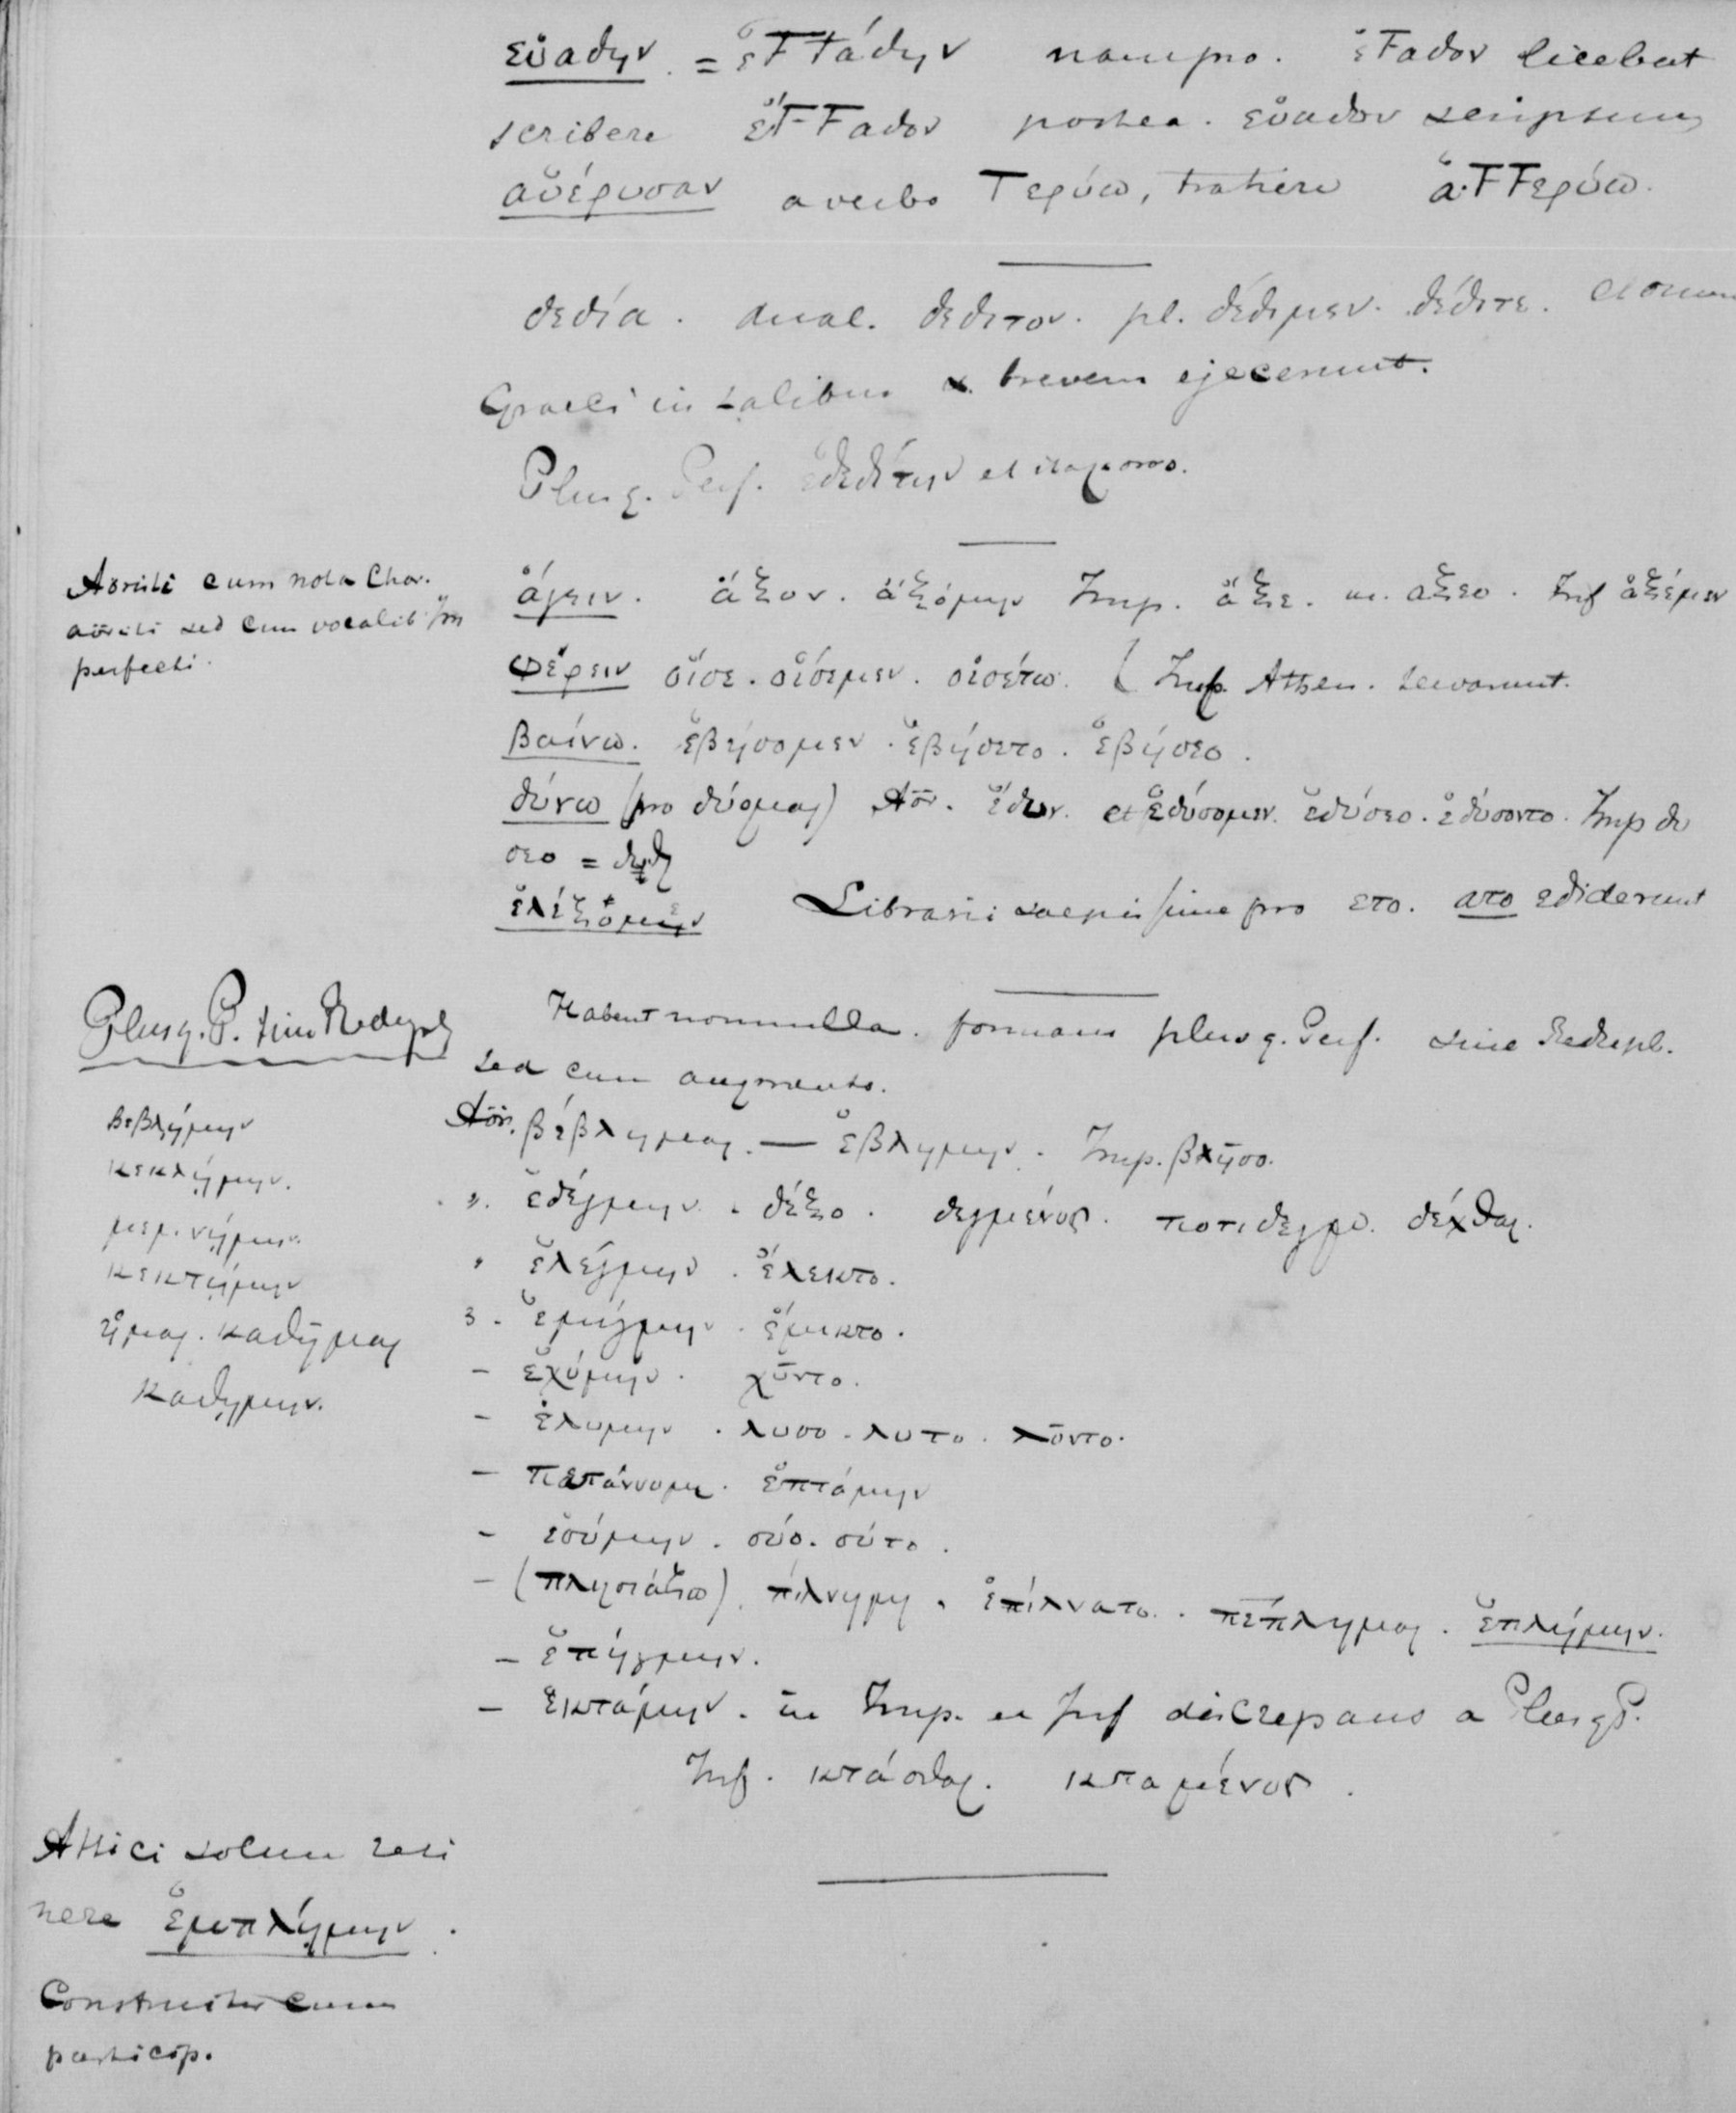 εὔαδην. = ἐϜϜάδην nam pro. ἐϜαδον licebat
scribere ἔϜ-Ϝαδον postea. εὔαδον scriptum
αὐέρυσαν a verbo Ϝερύω, trahere ἀ.ϜϜερύω.
δεδία. dual. δεδιτον. pl. δέδιμεν. δέδιτε.
Graeci in talibus α. brevem ejecerunt.
Plusq. Perf. ἐδεδίτην et
Aoristi cum nota Char.
aoristi sed cum vocalib. Im
perfecti.
ἄγειν. ἄξον. ἀξόμην Imp. ἄξε. αξεο. Inf ἀξέμεν
Φέρειν οἶσε. οἰσέμεν. οἰσέτω. ( Imp. Athen. servarunt.
βαίνω. ἐβήσομεν. ἐβήσετο. ἐβήσεο.
δύνω (pro δύομαι) Aor. ἔδυν. et ἐδύσομεν. ἐδύσεο. ἐδύσοντο. Imp δυ
σεο =
ἐλέξομην Librarii saepissime pro ετο. ατο ediderunt
Plusq. P. sine Redupl
Habent nonnulla. formam plusq. Perf. sine Redupl.
sed cum augmento.
βεβλήμην
κεκλήμην.
μεμνήμην.
κεκτήμην
ἧμαι. καθῆμαι
καθημην.
Aor. βέβλημαι. — ἐβλήμην. Imp. βλῆσο.
". ἐδέγμην. δέξο. δεγμένος. ποτιδεγμ. δέχθαι.
" ἐλέγμην. ἔλεκτο.
3. ἐμίγμην. ἔμικτο.
- ἐχύμην. χῦντο.
- ἐλυμην. λυσο. λυτο. λῦντο.
- πετάννυμι. ἐπτάμην
- ἐσύμην. σύο. σύτο.
- (πλησιάζω). πίλνημι. ἐπίλνατο. πέπλημαι. ἐπλήμην.
- ἐπήγμην.
- ἐκτάμην. in Imp. et Inf discrepans a PlusqP.
Inf. κτάσθαι. κταμένος.
Attici solum reti
nere ἐμπλήμην.
Constructio cum
particip.